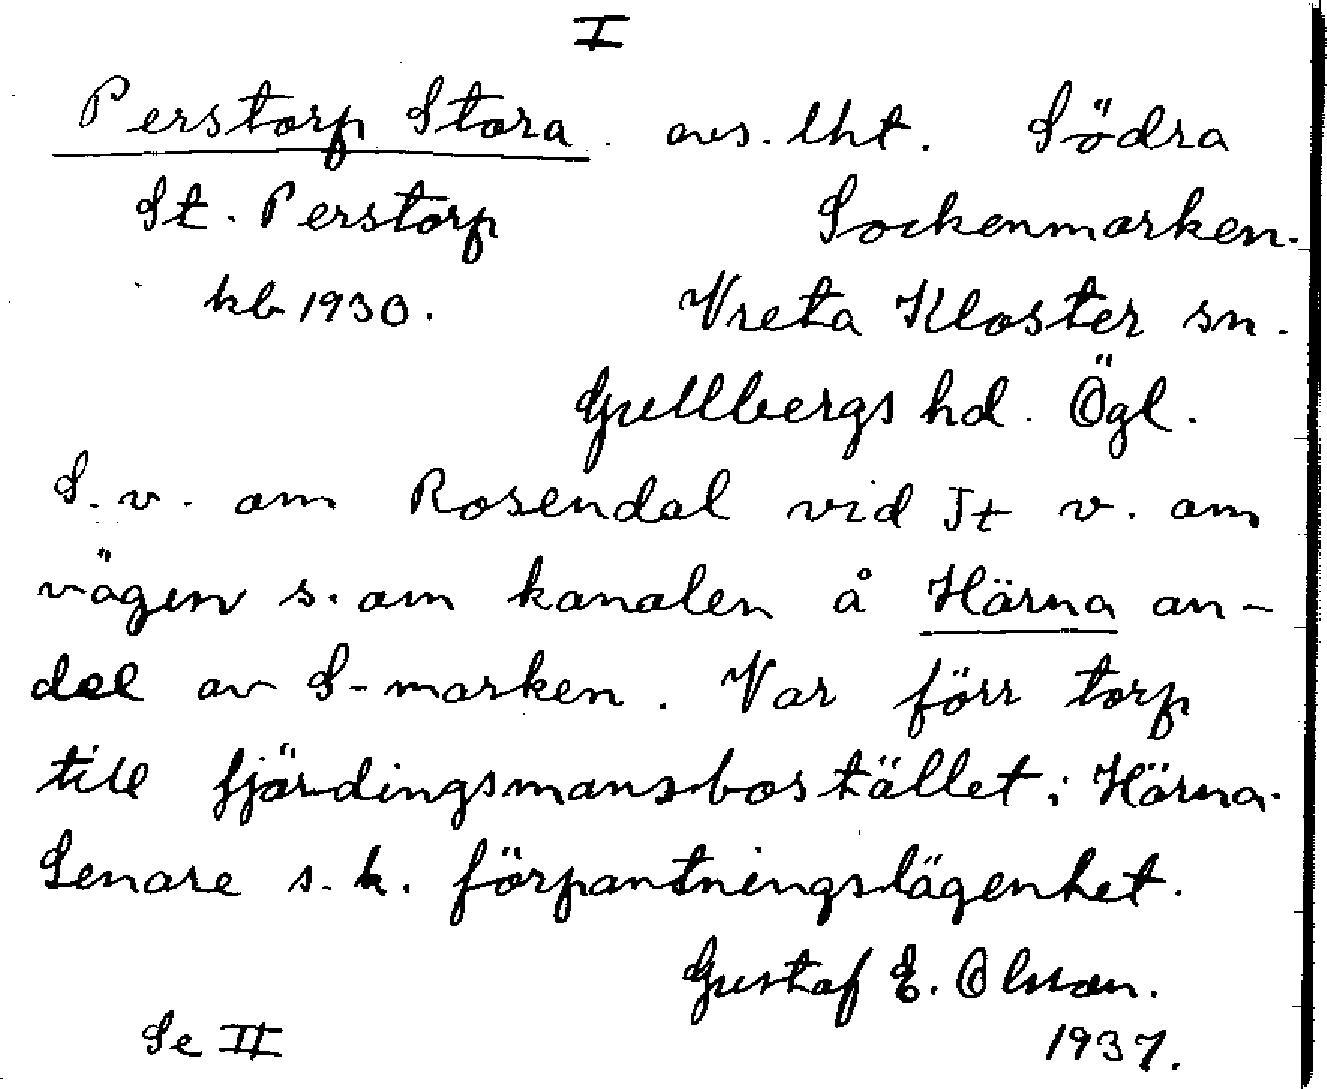 I
Perstorp Stora. avs. lht. Södra
St. Perstorp Sockenmarken.
kb 1930. Vreta Kloster sn.
Gullbergs hd. Ögl.
S. v. om Rosendal vid It v. om
vägen s. om kanalen å Härna an-
del av S-marken. Var förr torp
till fjärdingsmansbostället i Härna.
Senare s. k. förpantningslägenhet.
Gustaf E. Olsson.
Se II 1937.